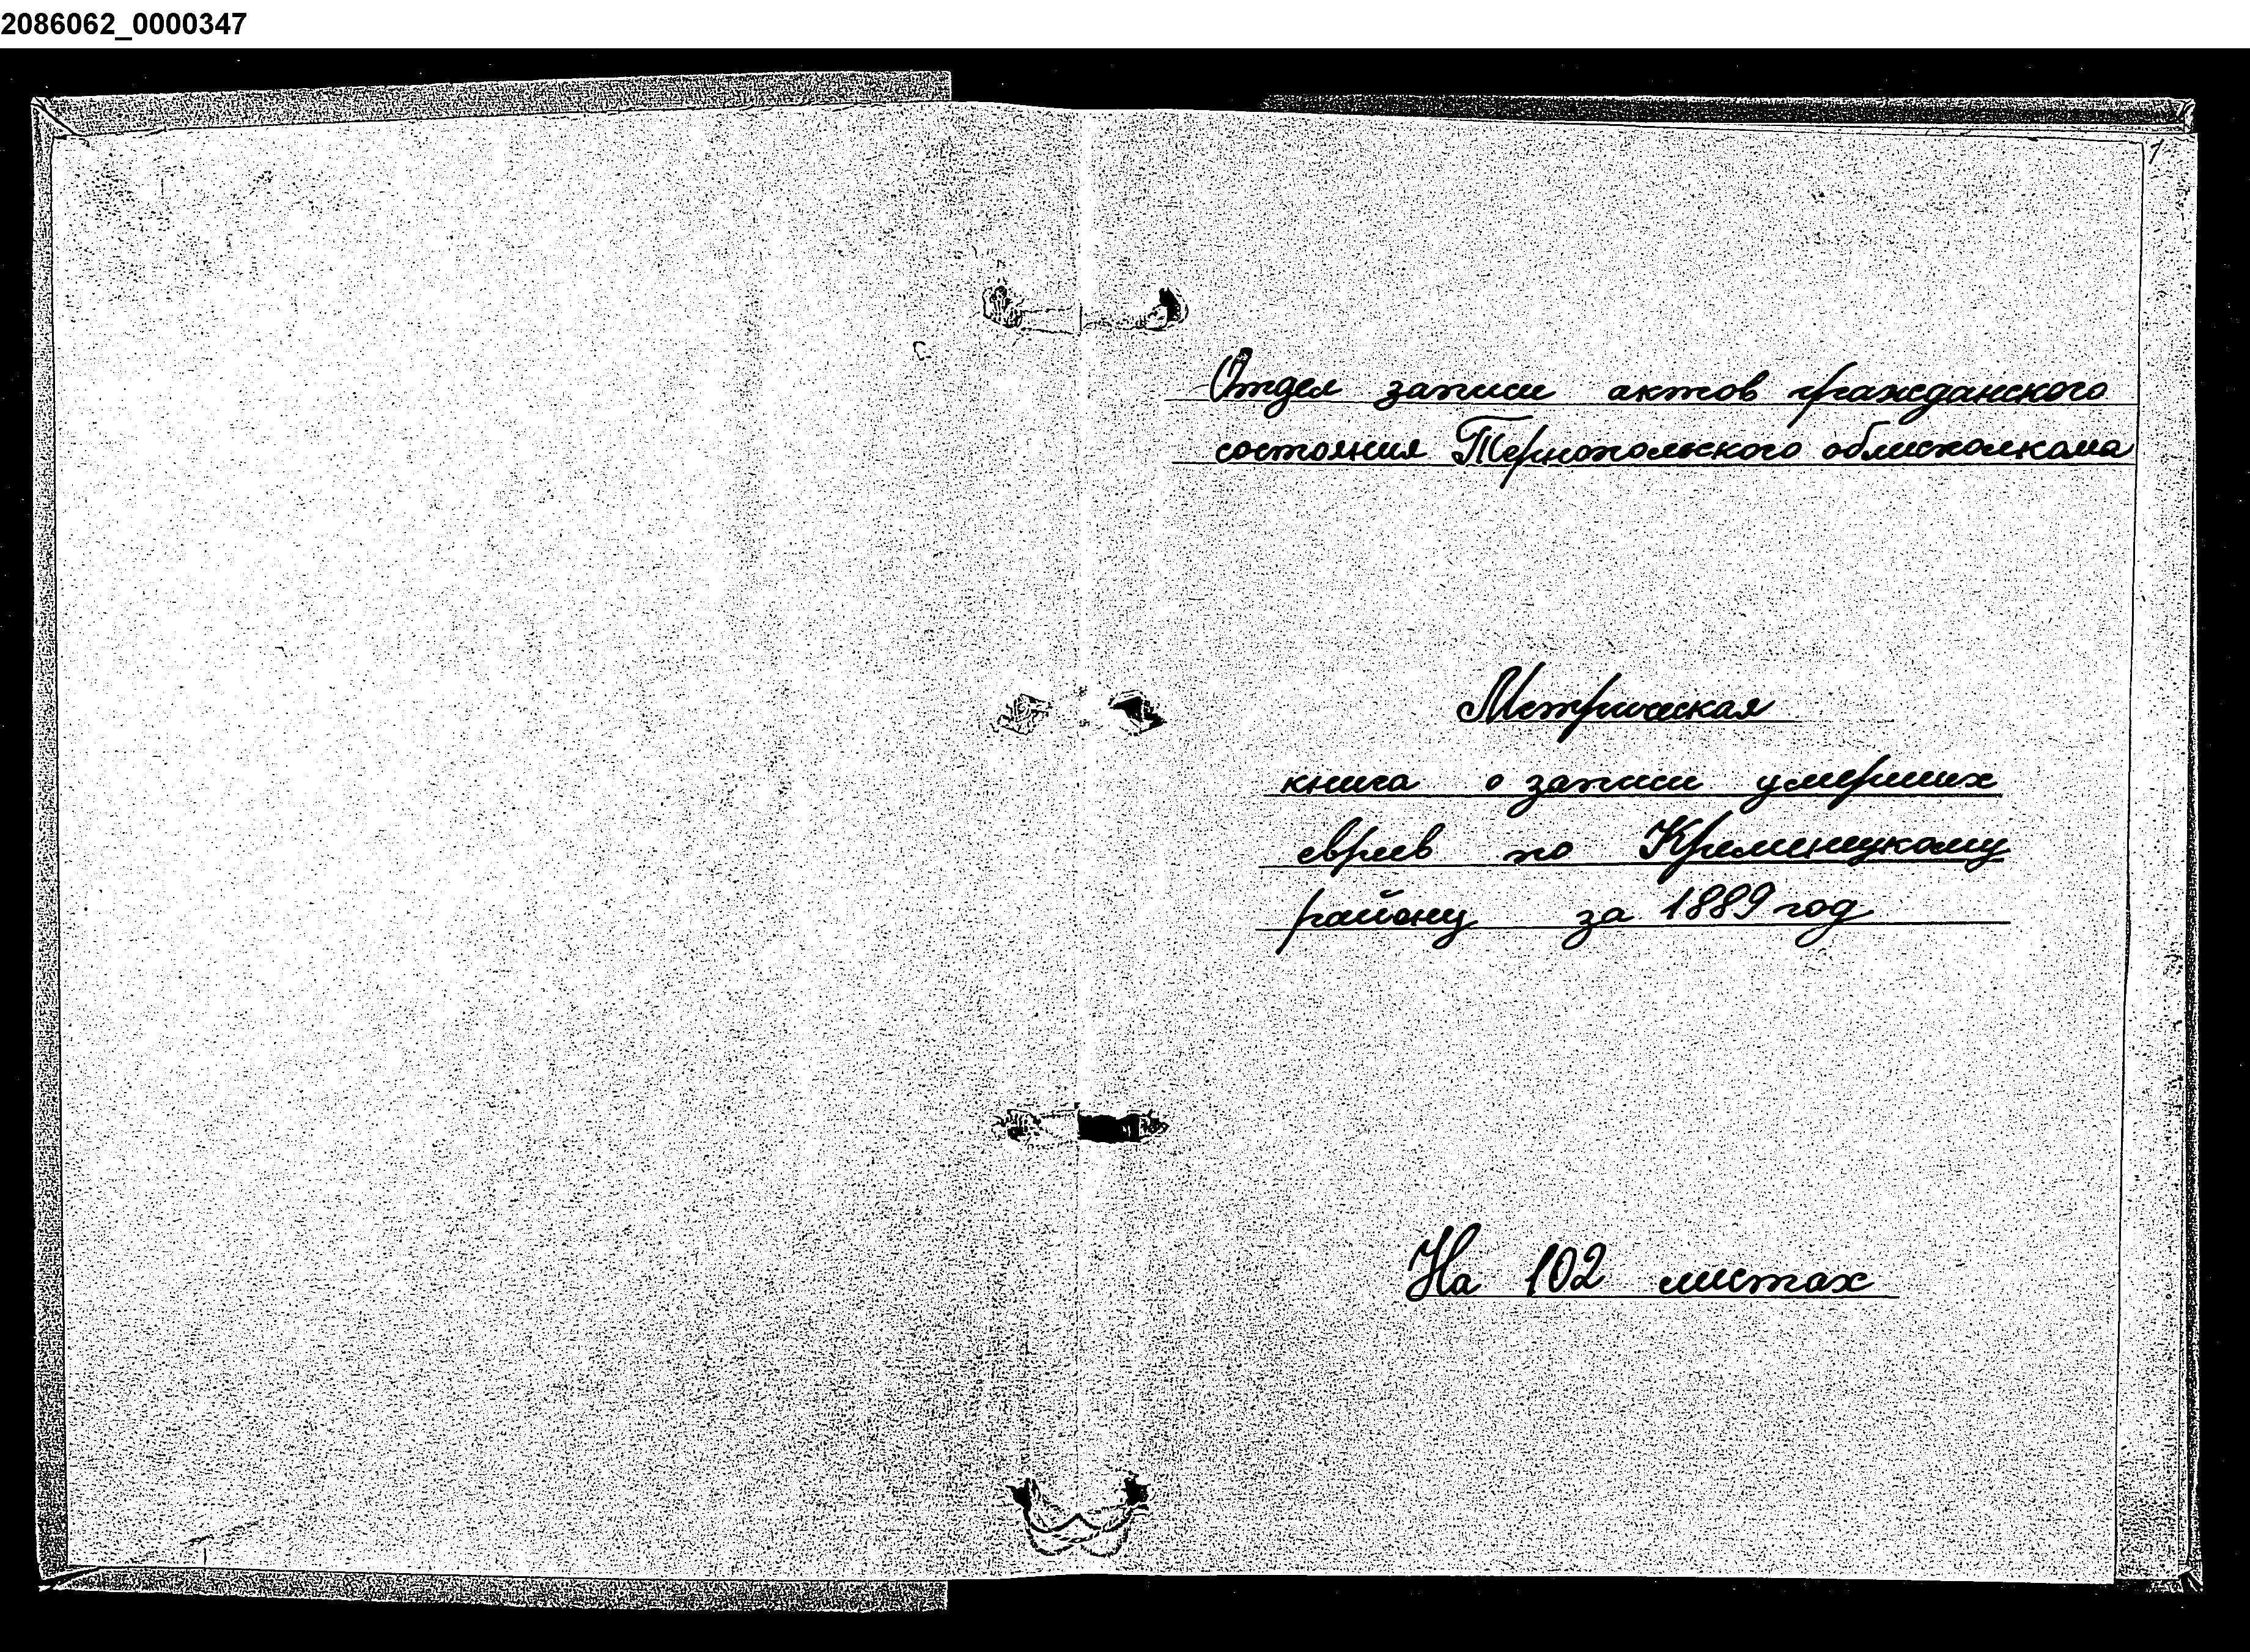 2086062_0000347
1
Отдел записи актов гражданского
состояния Тернопольского облисполкома
Метрическая
книга о записи умерших
евреев по Кременецкому
району за 1889 год
На 102 листах